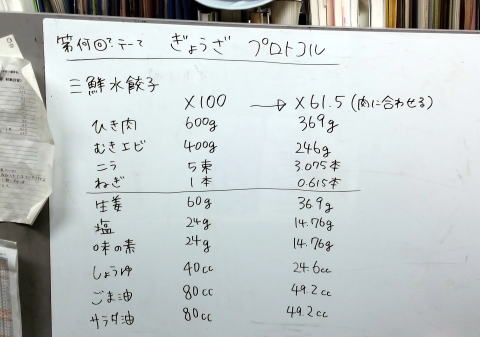 第何回?テーマ ぎょうざ プロトコル
三鮮水餃子
×100 → ×61.5 (肉に合わせる)
ひき肉 600g 369g
むきエビ 400g 246g
ニラ 5束 3.075本
ねぎ 1本 0.615本
生姜 60g 369g
塩 24g 14.76g
味の素 24g 14.76g
しょうゆ 40cc 24.6cc
ごま油 80cc 49.2cc
サラダ油 80cc 49.2cc